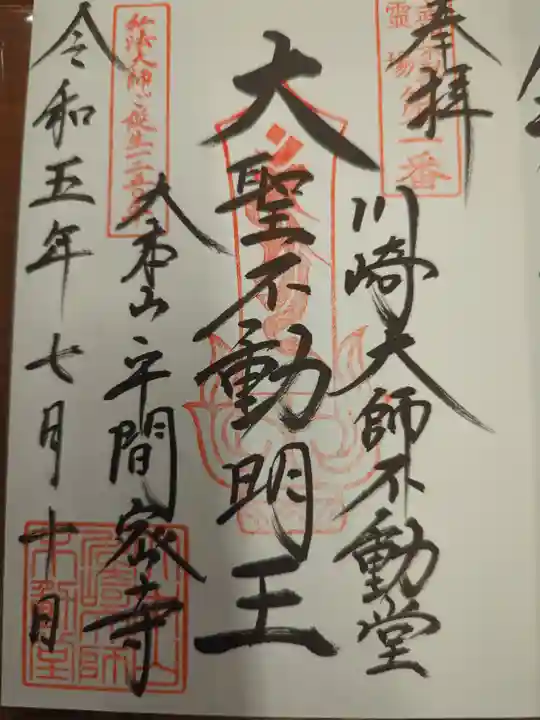 奉拝
川崎大師不動堂
大聖不動明王
大本山平間密寺
令和五年七月十日
霊場第一番
弘法大師ご誕生一二五〇年